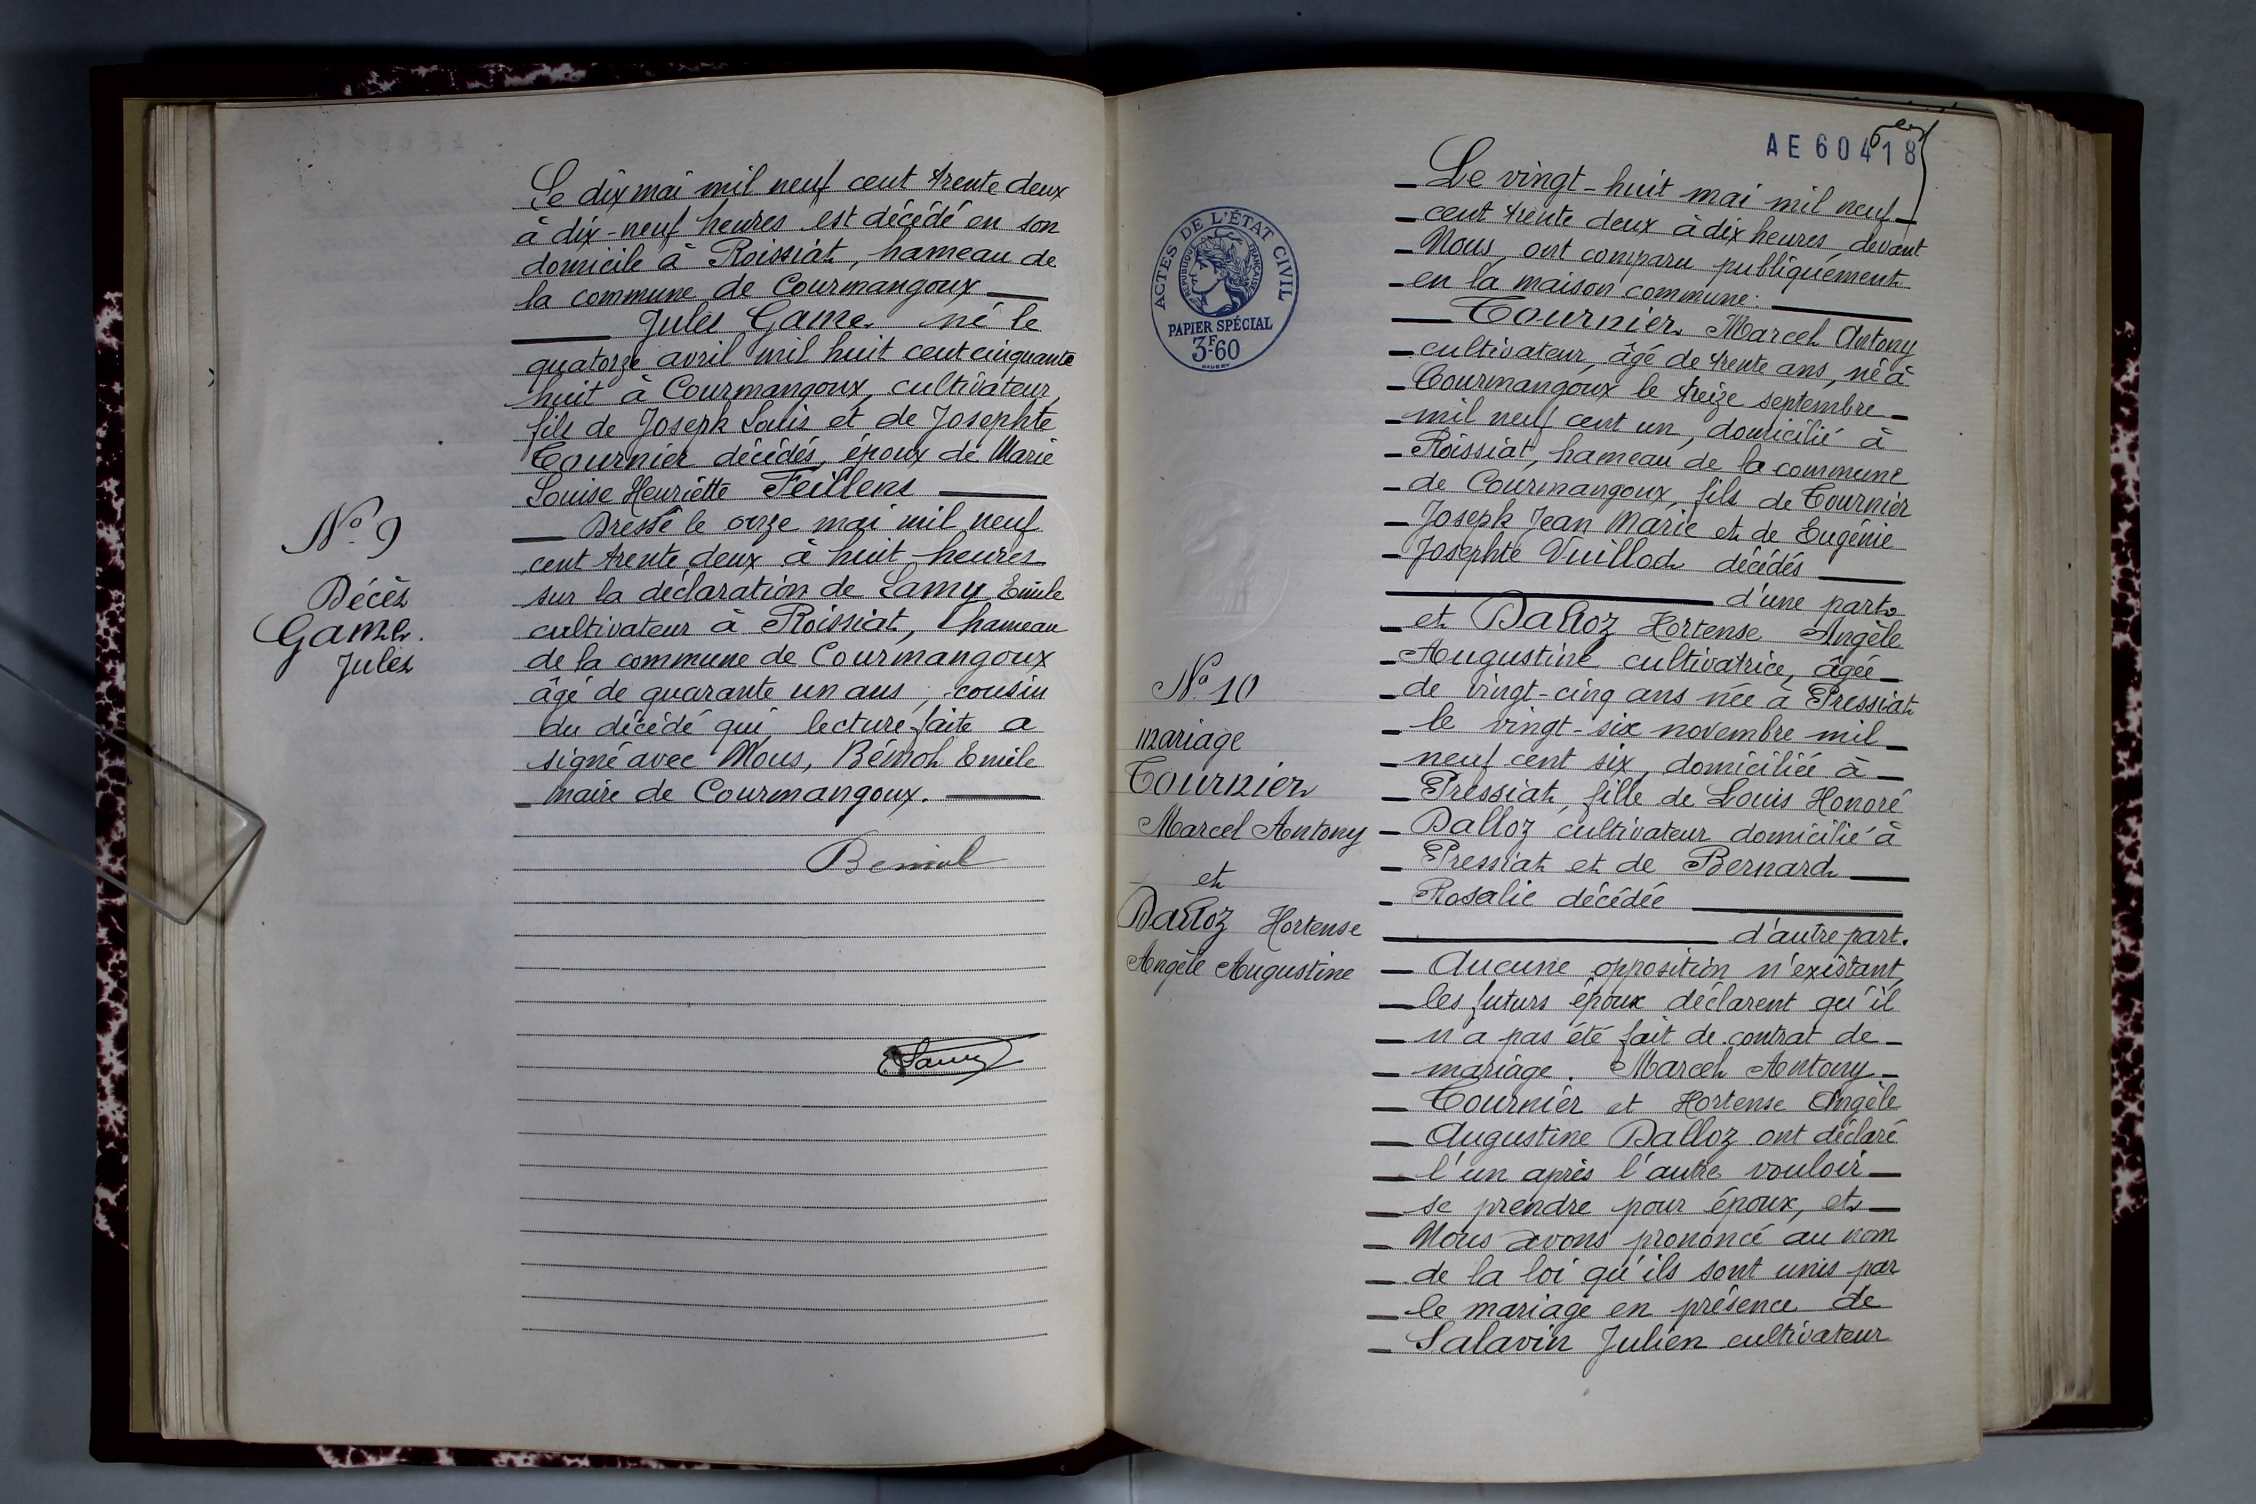 Le dix mai mil neuf cent trente deux
à dix-neuf heures est décédé en son
domicile à Roissiat, hameau de
la commune de Courmangoux
Jules Game né le
quatorze avril mil huit cent cinquante
huit à Courmangoux, cultivateur,
fils de Joseph Louis et de Josephte
Tournier décédés, époux de Marie
Louise Henriette Feillens
Dressé le onze mai mil neuf
cent trente deux à huit heures
sur la déclaration de Lamy Emile
cultivateur à Roissiat, hameau
de la commune de Courmangoux
âgé de quarante un ans, cousin
du décédé qui, lecture faite a
signé avec Nous, Béniol Emile
maire de Courmangoux.
Beniol
E. Lamy
N° 9
Décès
Game
Jules
AE 60418
ACTES DE L'ÉTAT CIVIL
RÉPUBLIQUE FRANÇAISE
PAPIER SPÉCIAL
3F60
N° 10
mariage
Tournier
Marcel Antony
et
Dalloz Hortense
Angèle Augustine
Le vingt-huit mai mil neuf
cent trente deux à dix heures, devant
Nous, ont comparu publiquement
en la maison commune:
Tournier Marcel Antony
cultivateur, âgé de trente ans, né à
Courmangoux le treize septembre
mil neuf cent un, domicilié à
Roissiat, hameau de la commune
de Courmangoux, fils de Tournier
Joseph Jean Marie et de Eugénie
Josephte Vuillod décédés
d'une part
et Dalloz Hortense Angèle
Augustine cultivatrice, âgée
de vingt-cinq ans née à Pressiat
le vingt-six novembre mil
neuf cent six, domiciliée à
Pressiat, fille de Louis Honoré
Dalloz cultivateur domicilié à
Pressiat et de Bernard
Rosalie décédée
d'autre part.
Aucune opposition n'existant,
les futurs époux déclarent qu'il
n'a pas été fait de contrat de
mariage. Marcel Antony
Tournier et Hortense Angèle
Augustine Dalloz ont déclaré
l'un après l'autre vouloir
se prendre pour époux, et
Nous avons prononcé au nom
de la loi qu'ils sont unis par
le mariage en présence de
Salavin Julien cultivateur